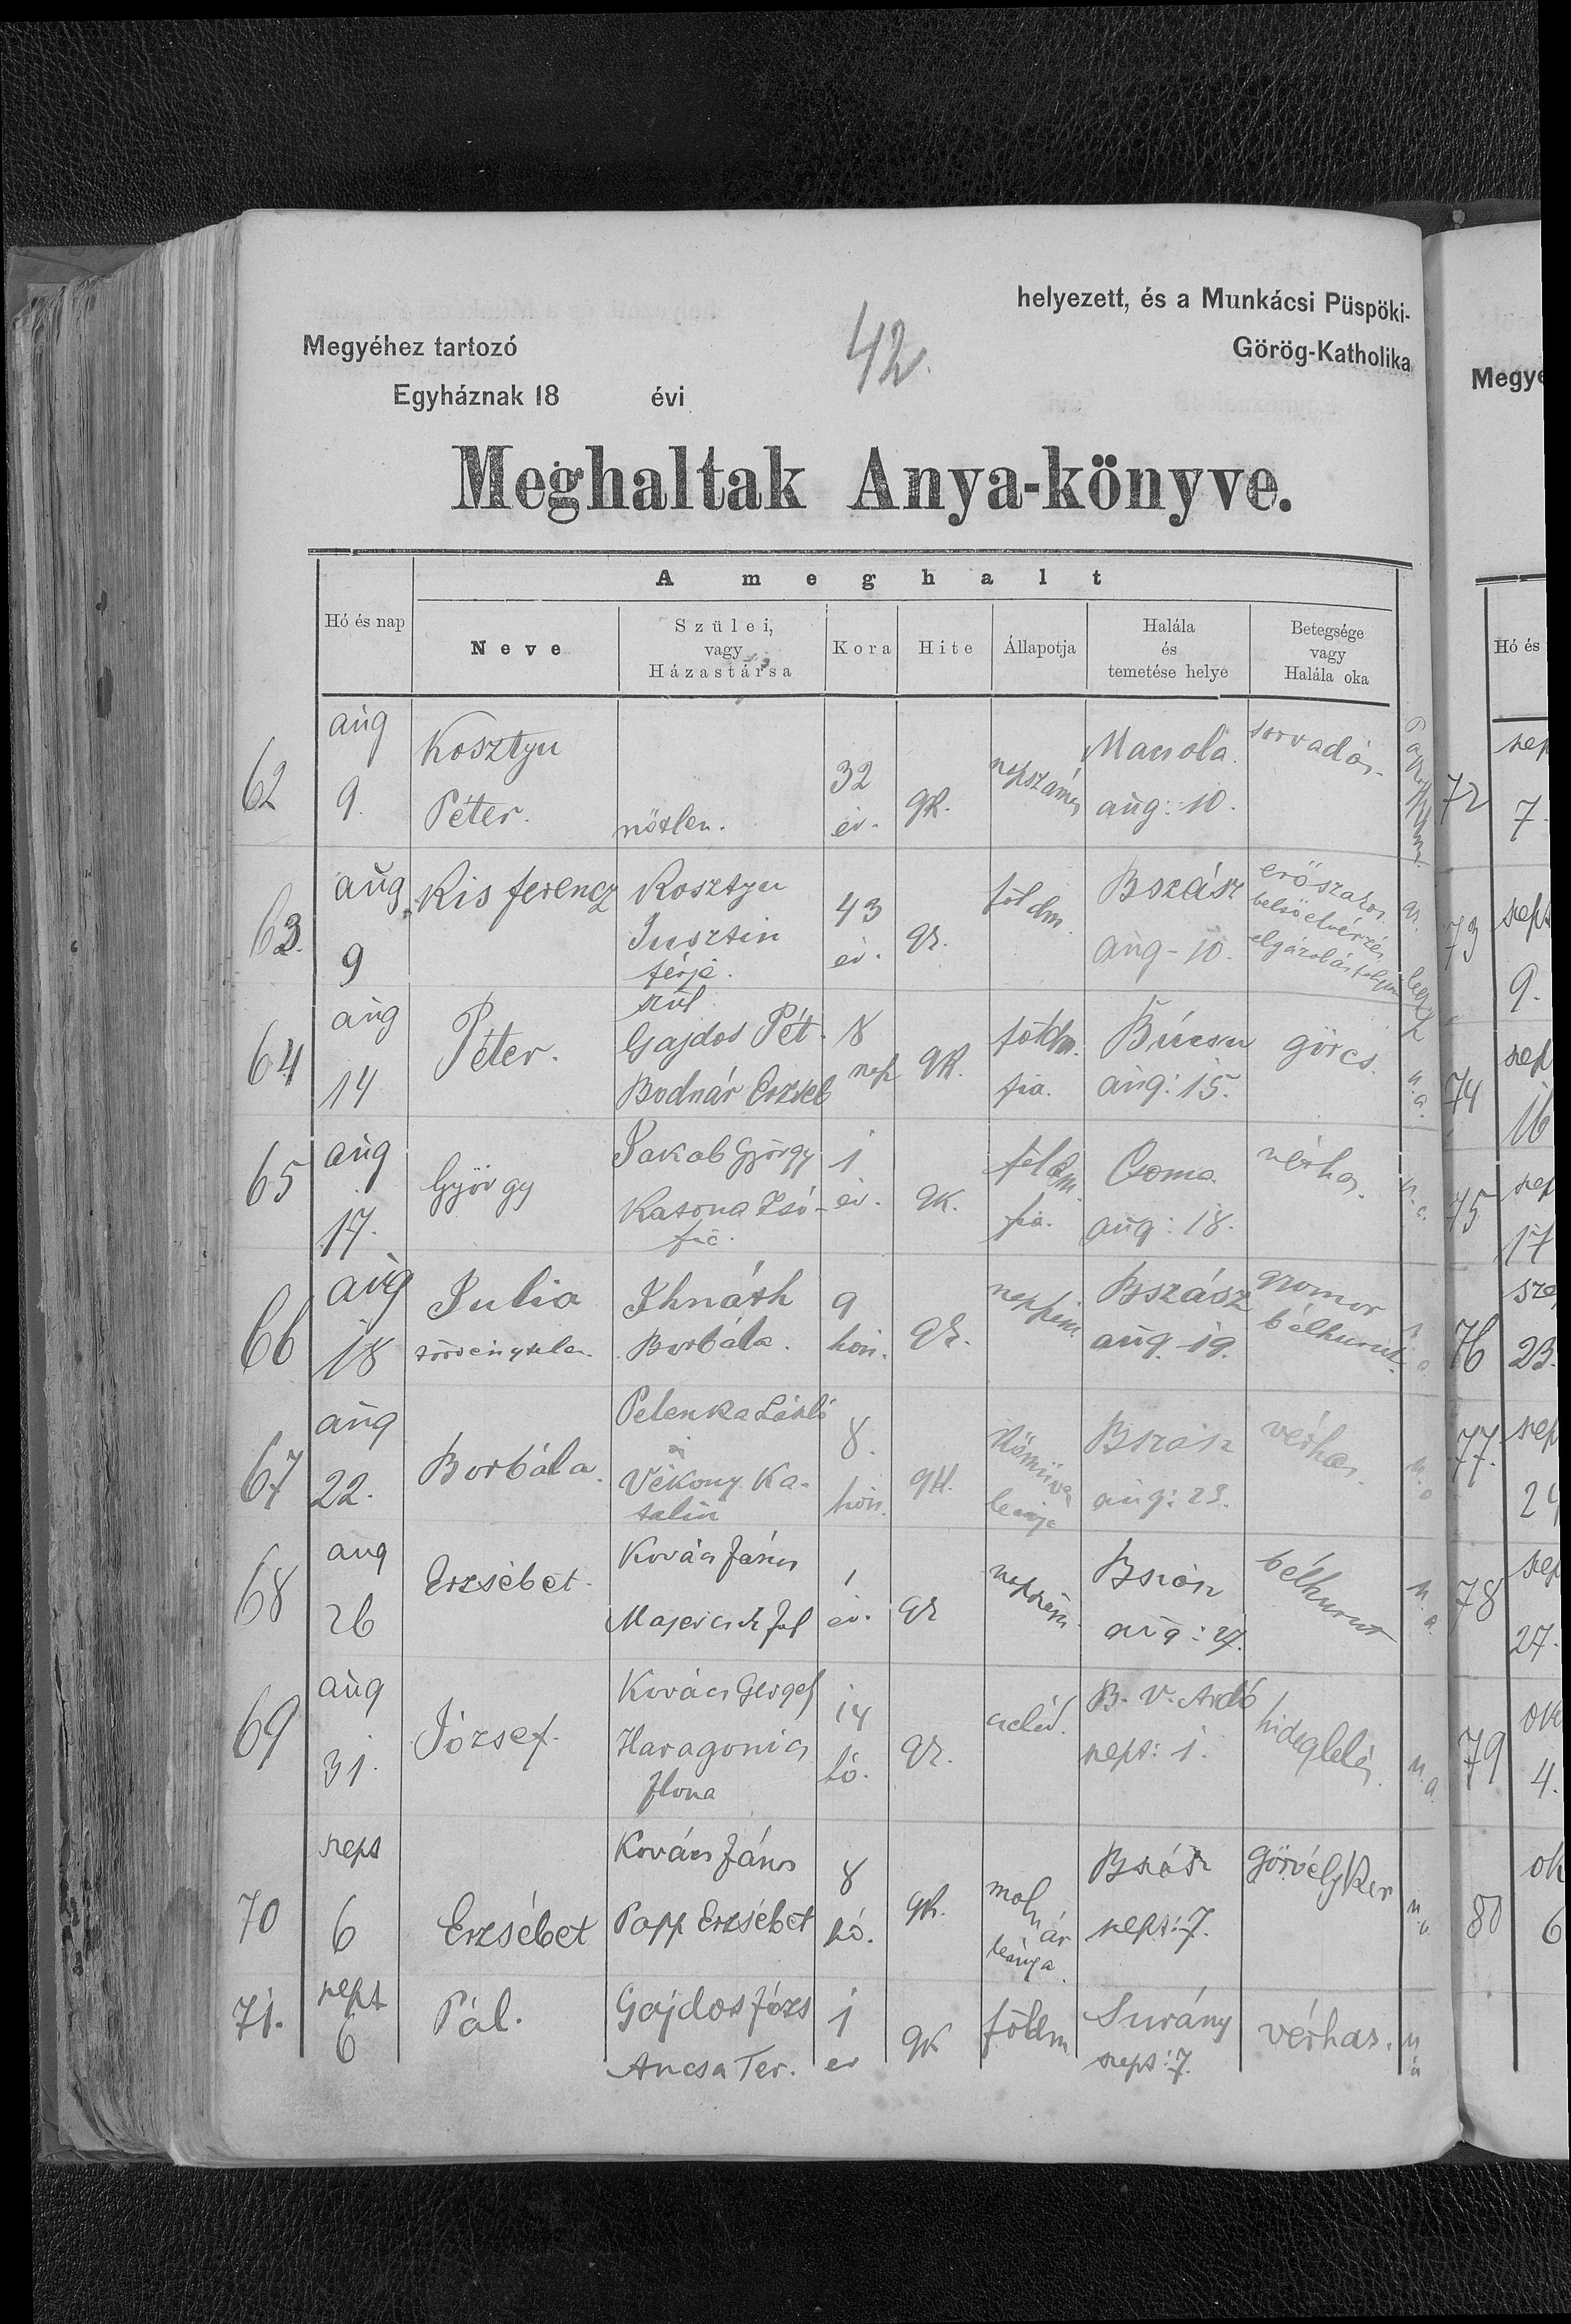 helyezett, és a Munkácsi Püspöki-
Megyéhez tartozó
42.
Görög-Katholika
Egyháznak 18 évi
Meghaltak Anya-könyve.
A meghalt
Hó és nap
Neve
Szülei,
vagy
Házastársa
Kora
Hite
Állapotja
Halála
és
temetése helye
Betegsége
vagy
Halála oka
62
aug
9.
Kosztyu
Péter.
nőtlen.
32
év.
gk.
napszámos
aug: 10.
sorvadás.
63.
aug
9
Kis ferencz
Kosztyu
Jusztin
férje.
43
év.
gk.
földm.
Bszász
aug - 10.
erőszakos
belső elvérzés
elgázolás
64
aug
14
Péter.
szül
Gajdos Pét.
Bodnár Erzseb
8
nap
gk.
földm.
fia.
Búcsu
aug: 15.
görcs.
n. a.
65
aug
17.
György
Jakab György
Katona Zsó-
fia.
1
év.
gk.
földm.
fia.
Csoma
aug: 18.
vérhas.
66
aug
18
Julia
törvénytelen.
Ihnáth
Borbála.
9
hón.
gk.
Bszász
aug. 19.
gyomor
bélhurut.
67
aug
22.
Borbála.
Pelenka László
Vékony Ka-
talin
8.
hón.
gk.
Kőműves
leánya
Bszász
aug: 23.
vérhas.
68
aug
26
Erzsébet.
Kovács János
1
év.
gk
napszám.
Bszász
aug: 27.
bélhurut
n. a.
69
aug
31.
József.
Kovács Gergely
Haragonics
Ilona
14
hó.
gk.
cseléd.
B. V. Ardó
sept: 1.
hideglelés.
n. a.
70
sept
6
Erzsébet
Kovács János
Papp Erzsébet
8
hó.
gk.
molnár
leánya.
Bszász
sept: 7.
görvélykór
71.
sept
6
Pál.
Gajdos józs
Ancsa Ter.
1
év
gk
földm
Surány
sept: 7.
vérhas.
Megye
Hó és
72
7.
73
sept
9.
74
16
75
17
76
23.
77.
78
27.
79
4.
80
6